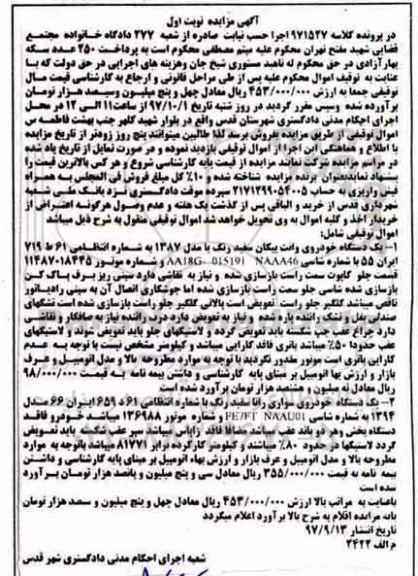 آگهی مزایده نوبت اول
در پرونده کلاسه ۹۷۱۵۲۷ اجرا حسب نیابت صادره از شعبه ۲۷۷ دادگاه خانواده مجتمع
قضایی شهید مفتح تهران محکوم علیه میثم مصطفی محکوم است به پرداخت ۲۵۰ عدد سکه
بهار آزادی در حق محکوم له ناهید مستوری شیخ جان وهزینه های اجرایی در حق دولت که با
عنایت به توقیف اموال محکوم علیه پس از طی مراحل قانونی و ارجاع به کارشناسی قیمت مال
توقیفی جمعا به ارزش ۴۵۳/۰۰۰/۰۰۰ ریال معادل چهل و پنج میلیون وسیصد هزار تومان
برآورده شده وسپس مقرر گردید در روز شنبه تاریخ ۹۷/۱۰/۱ از ساعت ۱۱ الی ۱۲ در محل
اجرای احکام مدنی دادگستری شهرستان قدس واقع در بلوار شهید کلهر جنب بهشت فاطمه س
اموال توقیفی از طریق مزایده بفروش برسد لذا طالبین میتوانند پنج روز زودتر از تاریخ مزایده
با اطلاع و هماهنگی این اجرا از اموال توقیفی بازدید نموده و در صورت تمایل از تاریخ یاد شده
در مراسم مزایده شرکت نمایند مزایده از قیمت پایه کارشناسی شروع و هر کس بالاترین قیمت را
پیشنهاد نماید بعنوان برنده مزایده شناخته شده و ۱۰٪ کل مبلغ فروش فی المجلس به همراه
فیش واریزی به حساب ۲۱۷۱۲۹۹۰۵۴۰۰۵ سپرده موقت دادگستری نزد بانک ملی شعبه
شهرداری قدس از خرید و الباقی پس از گذشت یک هفته و عدم وصول هرگونه اعتراضی از
خریدار اخذ و کلیه اموال به وی تحویل خواهد شد اموال توقیفی منقول به شرح ذیل میباشد
اموال توقیفی شامل:
۱- یک دستگاه خودروی وانت پیکان سفید رنگ با مدل ۱۳۸۷ به شماره انتظامی ۶۱ ط ۷۱۹
ایران ۵۵ با شماره شاسی AA18G 015191 NAAA46 و شماره موتور ۱۱۴۸۷۰۱۸۴۴۵
قسمت جلو کاپوت سمت راست بازسازی شده و نیاز به نقاشی دارد سینی زیر برف پاک کن
بازسازی شده شاسی جلو سمت راست بازسازی شده اما جوشکاری اتصال آن به سینی رادیاتور
ناقص میباشد گلگیر جلو راست تعویض است بالائی گلگیر جلو راست بازسازی شده است تشکهای
صندلی بغل و تشک راننده پاره شده و نیاز به تعویض دارد درب راننده نیاز به صافکار و نقاشی
دارد چراغ عقب چپ شکسته باید تعویض گردد و لاستیکهای جلو باید تعویض شوند و لاستیکهای
عقب حدودا ۵۰٪ میباشد باتری فاقد کارایی میباشد و کیلومتر مشخص نیست با توجه به عدم
کارایی باتری تست موتور مقدور نگردید با توجه به موارد مطروحه بالا و مدل اتومبیل و عرف
بازار و ارزش بها اتومبیل بر مبنای پایه کارشناسی و داشتن بیمه نامه به قیمت ۹۸/۰۰۰/۰۰۰
ریال معادل نه میلیون و هشتصد هزار تومان برآورد شده است
۲- یک دستگاه خودروی سواری رانا سفید رنگ با شماره انتظامی ۶۱ د ۶۵۹ ایران ۶۶ مدل
۱۳۹۴ به شماره شاسی FE/FT NAAU01 و شماره موتور ۱۳۶۹۸۸ میباشد خودرو فاقد
دستگاه پخش ودو باند عقب میباشد مضافا فاقد زاپاس میباشد سپر عقب شکسته باید تعویض
گردد لاستیکها در حدود ۸۰٪ میباشند و کیلومتر کارکرده برابر ۸۱۷۷۱ میباشد باتوجه به موارد
مطروحه بالا و مدل اتومبیل و عرف بازار و ارزش بهاء اتومبیل بر مبنای پایه کارشناسی و داشتن
بیمه نامه به قیمت ۳۵۵/۰۰۰/۰۰۰ ریال معادل سی و پنج میلیون و پانصد هزار تومان برآورد
شده است
باعنایت به مراتب بالا ارزش ۴۵۳/۰۰۰/۰۰۰ ریال معادل چهل و پنج میلیون و سیصد هزار تومان
بابت مزایده اقلام به شرح بالا برآورد اعلام میگردد
تاریخ انتشار ۹۷/۹/۱۳
م الف ۲۴۲۲
شعبه اجرای احکام مدنی دادگستری شهر قدس